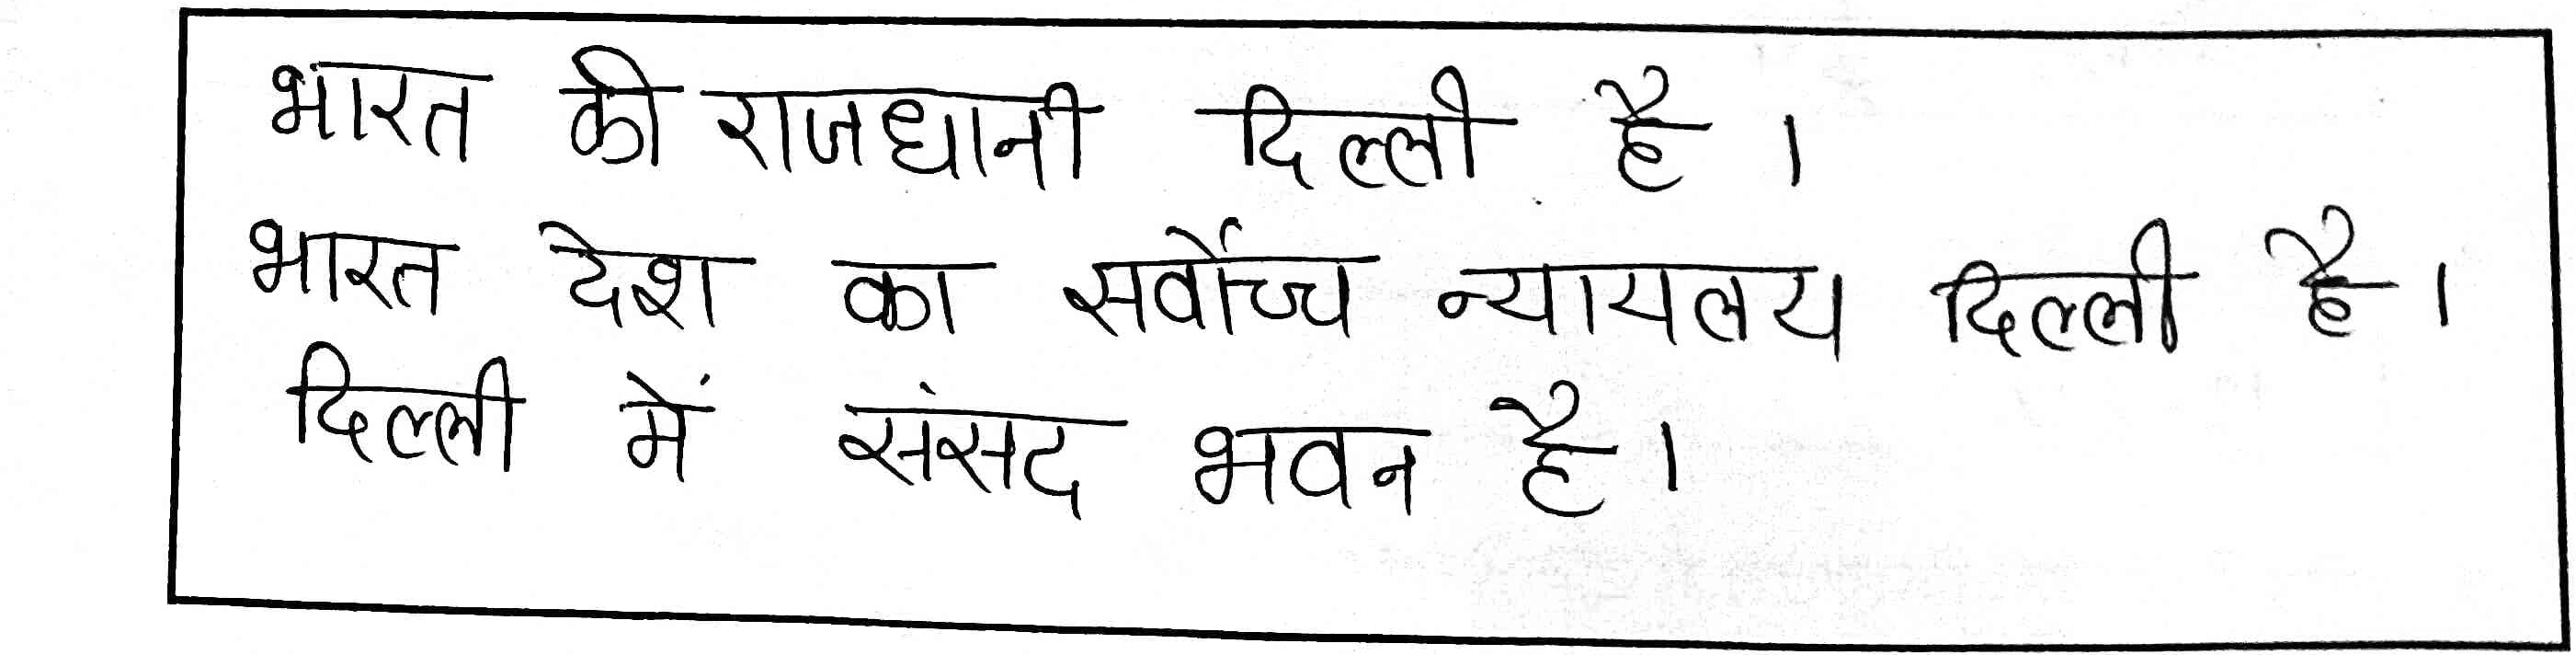 भारत की राजधानी दिल्ली है।
भारत देश का सर्वोच्च न्यायलय दिल्ली है।
दिल्ली में संसद भवन है।